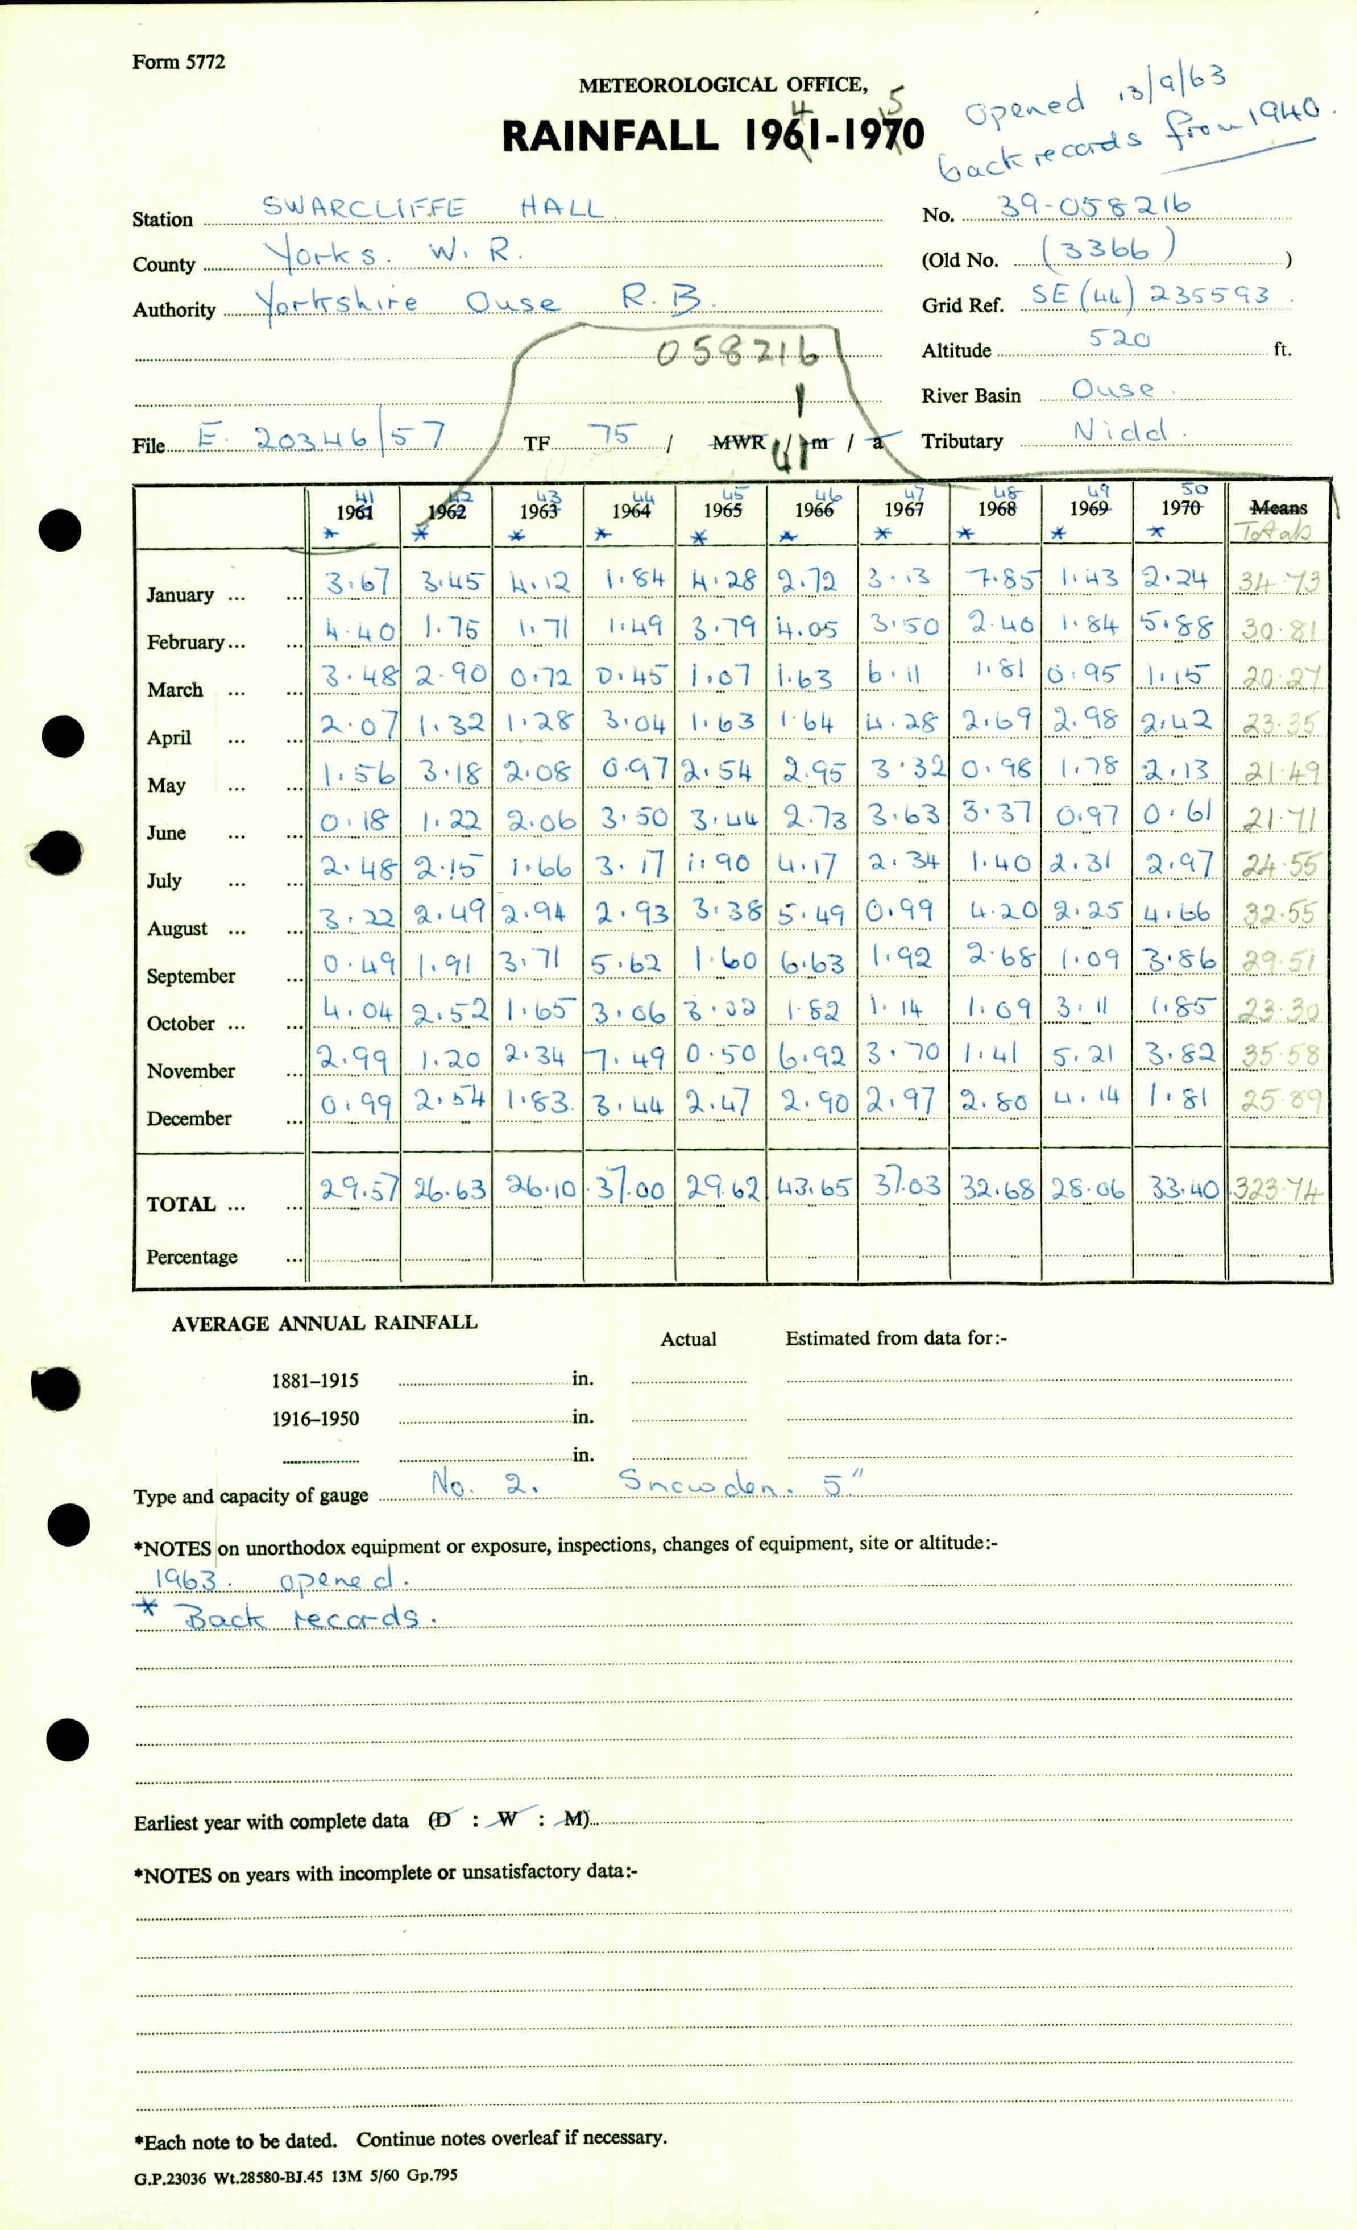 Form 5772
METEOROLOGICAL OFFICE,
4 5
RAINFALL 1961-1970
Opened 13/9/63
back records from 1940.
Station SWARCLIFFE HALL No. 39-058216
County Yorks. W. R. (Old No. (3366) )
Authority Yorkshire Ouse R. B. Grid Ref. SE (44) 235593
058216 Altitude 520 ft.
River Basin Ouse
File E. 20346/57 TF 75 / MWR / m / a Tributary Nidd.
41 42 43 44 45 46 47 48 49 50
1961 1962 1963 1964 1965 1966 1967 1968 1969 1970 Means
* * * * * * * * * * Totals
January ... ... 3.67 3.45 4.12 1.84 4.28 2.72 3.13 7.85 1.43 2.24 34.73
February ... ... 4.40 1.75 1.71 1.49 3.79 4.05 3.50 2.40 1.84 5.88 30.81
March ... ... 3.48 2.90 0.72 0.45 1.07 1.63 6.11 1.81 0.95 1.15 20.27
April ... ... 2.07 1.32 1.28 3.04 1.63 1.64 4.28 2.69 2.98 2.42 23.35
May ... ... 1.56 3.18 2.08 0.97 2.54 2.95 3.32 0.98 1.78 2.13 21.49
June ... ... 0.18 1.22 2.06 3.50 3.44 2.73 3.63 3.37 0.97 0.61 21.71
July ... ... 2.48 2.15 1.66 3.17 1.90 4.17 2.34 1.40 2.31 2.97 24.55
August ... ... 3.22 2.49 2.94 2.93 3.38 5.49 0.99 4.20 2.25 4.66 32.55
September ... 0.49 1.91 3.71 5.62 1.60 6.63 1.92 2.68 1.09 3.86 29.51
October ... ... 4.04 2.52 1.65 3.06 3.02 1.82 1.14 1.09 3.11 1.85 23.30
November ... 2.99 1.20 2.34 7.49 0.50 6.92 3.70 1.41 5.21 3.82 35.58
December ... 0.99 2.54 1.83 3.44 2.47 2.90 2.97 2.80 4.14 1.81 25.89
TOTAL ... ... 29.57 26.63 26.10 37.00 29.62 43.65 37.03 32.68 28.06 33.40 323.74
Percentage ...
AVERAGE ANNUAL RAINFALL
Actual Estimated from data for:-
1881-1915 in.
1916-1950 in.
in.
Type and capacity of gauge No. 2. Snowdon. 5"
*NOTES on unorthodox equipment or exposure, inspections, changes of equipment, site or altitude:-
1963. opened.
* Back records.
Earliest year with complete data (D : W : M)
*NOTES on years with incomplete or unsatisfactory data:-
*Each note to be dated. Continue notes overleaf if necessary.
G.P.23036 Wt.28580-BJ.45 13M 5/60 Gp.795